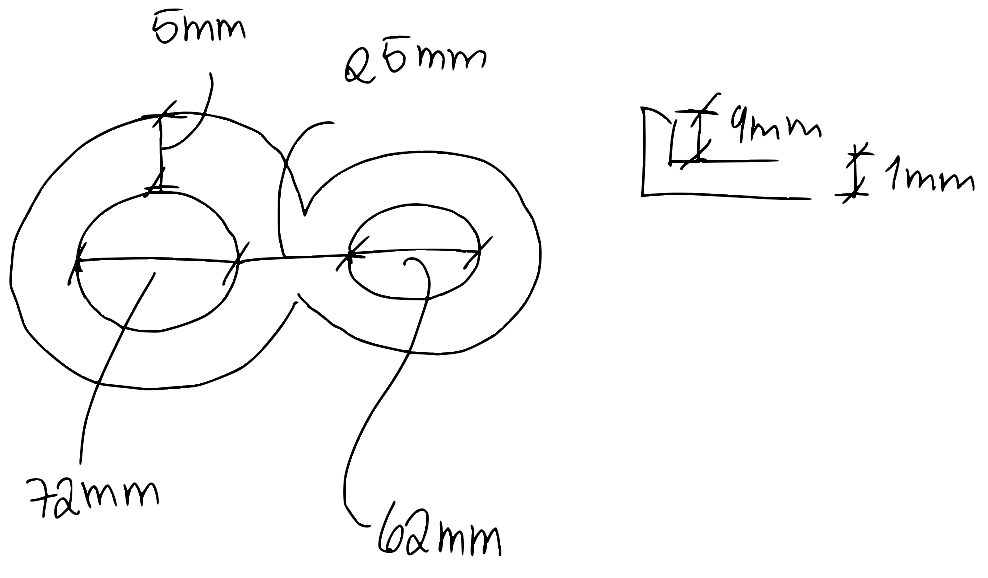 5mm
25mm
9mm
1mm
72mm
62mm